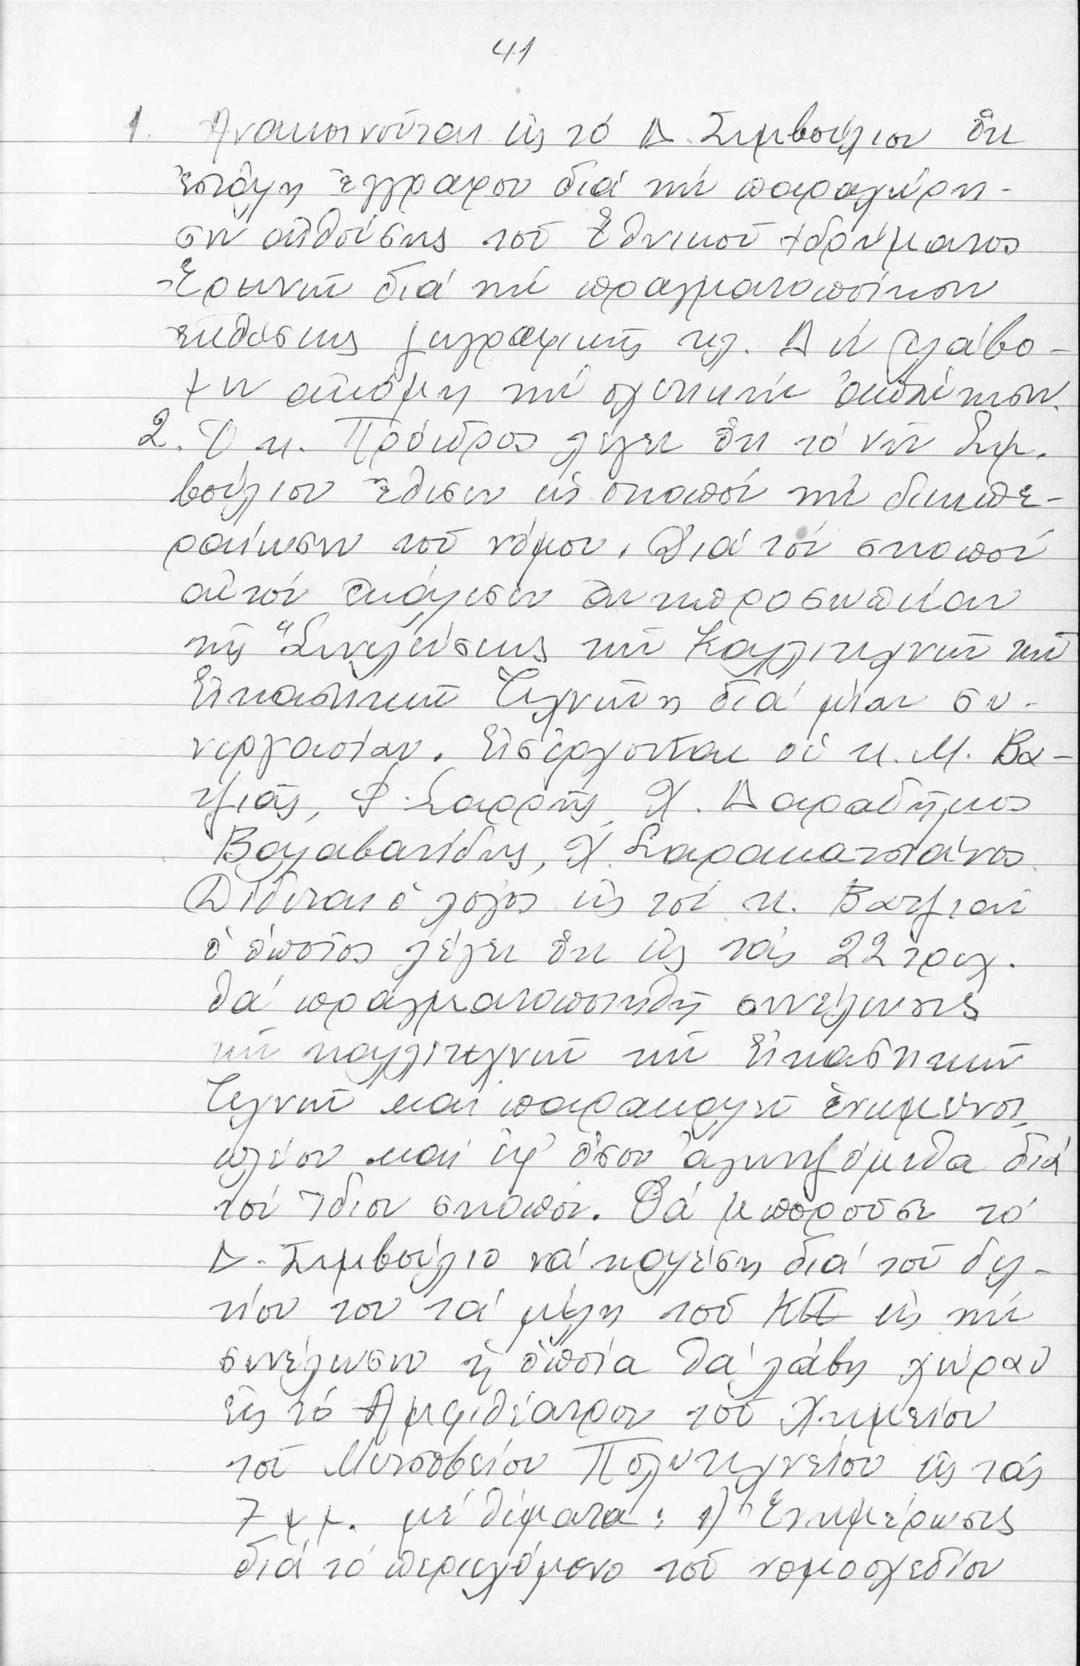 41
1. Ἀνακοινοῦται εἰς τό Δ. Συμβούλιον ὅτι
ἐστάλη ἔγγραφον διά τήν παραχώρη-
σιν αἰθούσης τοῦ Ἐθνικοῦ Ἱδρύματος
Ἐρευνῶν διά τήν πραγματοποίησιν
ἐκθέσεως ζωγραφικῆς κλ. Δέν λάβο-
μεν ἀκόμη τήν σχετικήν ἀπάντησιν.
2. Ὁ κ. Πρόεδρος λέγει ὅτι τό νῦν Συμ.
βούλιον ἔθεσεν ὡς σκοπόν τήν διεκπε-
ραίωσιν τοῦ νόμου. Διά τόν σκοπόν
αὐτόν ἐκάλεσεν ἀντιπροσωπείαν
τῆς "Συνελεύσεως τῶν Καλλιτεχνῶν τῶν
Εἰκαστικῶν Τεχνῶν" διά μίαν συ-
νεργασίαν. Εἰσέρχονται οἱ κ. Μ. Βα-
τζιᾶς, Φ. Σαρρῆς, Χ. Δαραδῆμος
Βαλαβανίδης, Χ. Σαρακατσιάνος.
Δίδεται ὁ λόγος εἰς τόν κ. Βατζιαν
ὁ ὁποῖος λέγει ὅτι εἰς τάς 22 τρεχ.
θά πραγματοποιηθῆ συνέλευσις
τῶν καλλιτεχνῶν τῶν Εἰκαστικῶν
Τεχνῶν καί παρακαλῶ ἑνωμένοι
πλέον καί ἐφ' ὅσον ἀγωνιζόμεθα διά
τόν ἴδιον σκοπόν. Θά μποροῦσε τό
Δ. Συμβούλιο νά καλέση διά τοῦ δελ-
τίου του τά μέλη τοῦ εἰς τήν
συνέλευσιν ἡ ὁποία θά λάβη χώραν
εἰς τό Ἀμφιθέατρον τοῦ Χημείου
τοῦ Μετσοβείου Πολυτεχνείου εἰς τάς
7 μ.μ. μέ θέματα: 1) Ἐνημέρωσις
διά τό περιεχόμενο τοῦ νομοσχεδίου